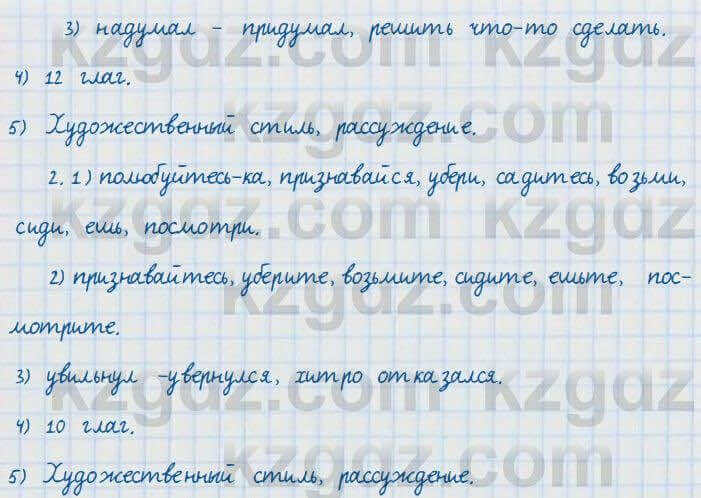 3) надумал - придумал, решить что-то сделать.
4) 12 глаг.
5) Художественный стиль, рассуждение.
2. 1) полюбуйтесь-ка, признавайся, убери, садитесь, возьми,
сиди, ешь, посмотри.
2) признавайтесь, уберите, возьмите, сидите, ешьте, пос-
мотрите.
3) увильнул -увернулся, хитро отказался.
4) 10 глаг.
5) Художественный стиль, рассуждение.
kzgdz.com kzgdz.com
kzgdz.com
kzgdz.com kzgdz.com
kzgdz.com
kzgdz.com kzgdz.com
kzgdz.com